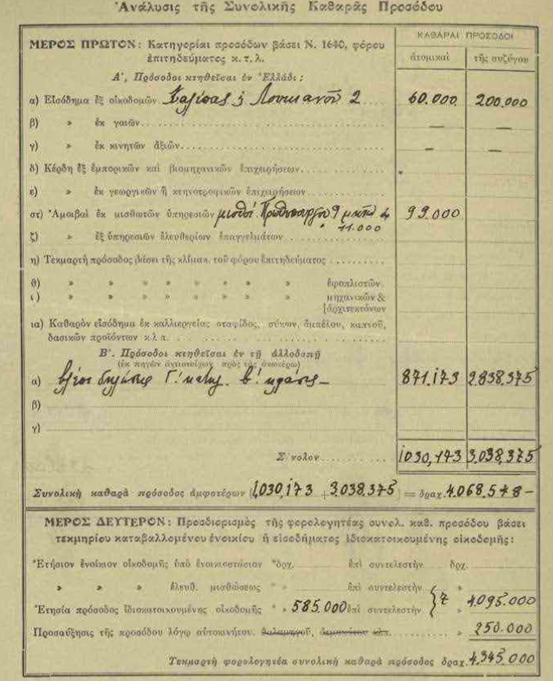 Ἀνάλυσις τῆς Συνολικῆς Καθαρᾶς Προσόδου
ΚΑΘΑΡΑΙ ΠΡΟΣΟΔΟΙ
ΜΕΡΟΣ ΠΡΩΤΟΝ: Κατηγορίαι προσόδων βάσει Ν. 1640, φόρου
ἐπιτηδεύματος κ.τ.λ.
ἀτομικαί τῆς συζύγου
Α', Πρόσοδοι κτηθεῖσαι ἐν Ἑλλάδι:
α) Εἰσόδημα ἐξ οἰκοδομῶν Λουκιανοῦ 2 60.000 200.000
β) » ἐκ γαιῶν — —
γ) » ἐκ κινητῶν ἀξιῶν — —
δ) Κέρδη ἐξ ἐμπορικῶν καὶ βιομηχανικῶν ἐπιχειρήσεων
ε) » ἐκ γεωργικῶν ἢ κτηνοτροφικῶν ἐπιχειρήσεων
στ) Ἀμοιβαὶ ἐκ μισθωτῶν ὑπηρεσιῶν μισθοί Πρωθυπουργοῦ 9 99.000
11.000
ζ) » ἐξ ὑπηρεσιῶν ἐλευθερίων ἐπαγγελμάτων
η) Τεκμαρτὴ πρόσοδος βάσει τῆς κλίμακ. τοῦ φόρου ἐπιτηδεύματος
θ) » » » » » » » ἐφοπλιστῶν
ι) » » » » » » » μηχανικῶν &
ἀρχιτεκτόνων
ια) Καθαρὸν εἰσόδημα ἐκ καλλιεργείας σταφίδος, σύκων, ἀμπέλου, καπνοῦ,
δασικῶν προϊόντων κ.λ.π.
Β'. Πρόσοδοι κτηθεῖσαι ἐν τῇ ἀλλοδαπῇ
(ἐκ πηγῶν ἀντιστοίχων πρὸς τὰς ἀνωτέρω)
α) βλέπε δήλωσις Γ' β' 871.173 2.838.375
β)
γ)
Σύνολον 1030,173 3.038.375
Συνολικὴ καθαρὰ πρόσοδος ἀμφοτέρων (1,030,173 + 3.038.375) = δραχ. 4.068.548 -
ΜΕΡΟΣ ΔΕΥΤΕΡΟΝ: Προσδιορισμὸς τῆς φορολογητέας συνολ. καθ. προσόδου βάσει
τεκμηρίου καταβαλλομένου ἐνοικίου ἢ εἰσοδήματος ἰδιοκατοικουμένης οἰκοδομῆς:
Ἐτήσιον ἐνοίκιον οἰκοδομῆς ὑπὸ ἐνοικιοστάσιον δρχ. ἐπὶ συντελεστὴν δρχ.
» » » ἐλευθ. μισθώσεως » ἐπὶ συντελεστὴν »
Ἐτησία πρόσοδος ἰδιοκατοικουμένης οἰκοδομῆς » 585.000 ἐπὶ συντελεστὴν 7 » 4.095.000
Προσαύξησις τῆς προσόδου λόγῳ αὐτοκινήτου, θαλαμηγοῦ, κλπ. » 250.000
Τεκμαρτὴ φορολογητέα συνολικὴ καθαρὰ πρόσοδος δραχ. 4.345.000